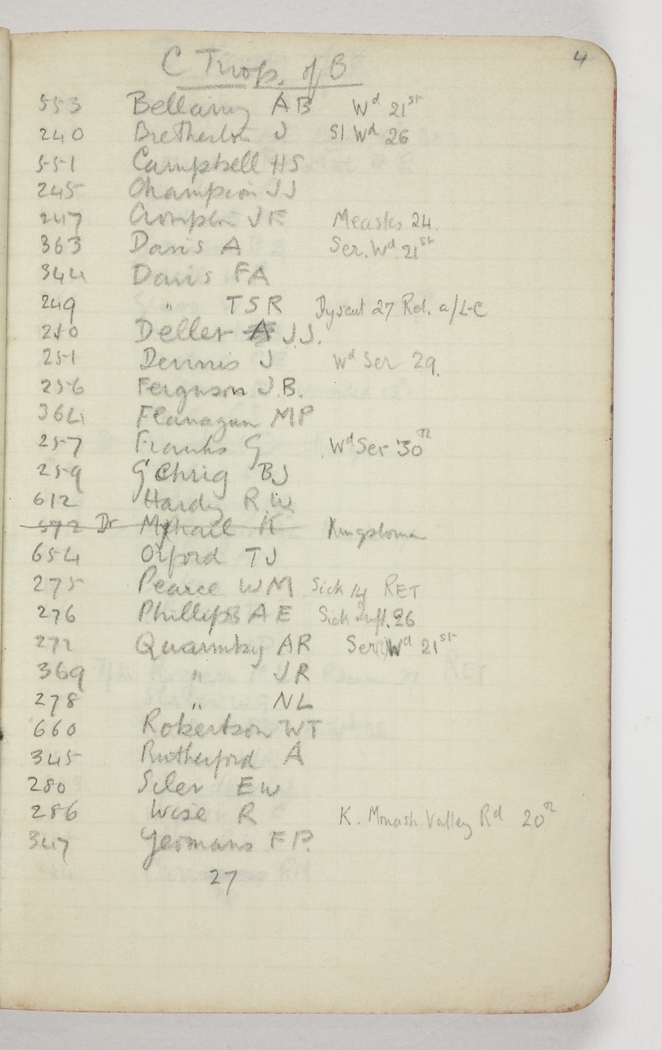 4
C Troop. of B
553 Bellamy AB Wd 21st
240 Bretherton J Sl Wd 26
551 Campbell HS
245 Champion JJ
247 Crompton JE Measles 24.
363 Davis A Ser. Wd 21st
344 Davis FA
249 " TSR Dysent 27 Ret. a/L-C
250 Deller A JJ.
251 Dennis J Wd Ser 29.
256 Ferguson J.B.
364 Flanagan MP
257 Franks G Wd Ser 30th
259 Gehrig BJ
612 Hardy R W.
572 Dr K
654 Oxford TJ
275 Pearce WM Sick 14 RET
276 Phillips A E Sick Infl. 26
272 Quarmby AR Ser Wd 21st
369 " JR
278 " NL
660 Robertson WT
345 Rutherford A
280 Siler EW
286 Wise R K. Monash Valley Rd 20th
347 Yeomans F P.
27